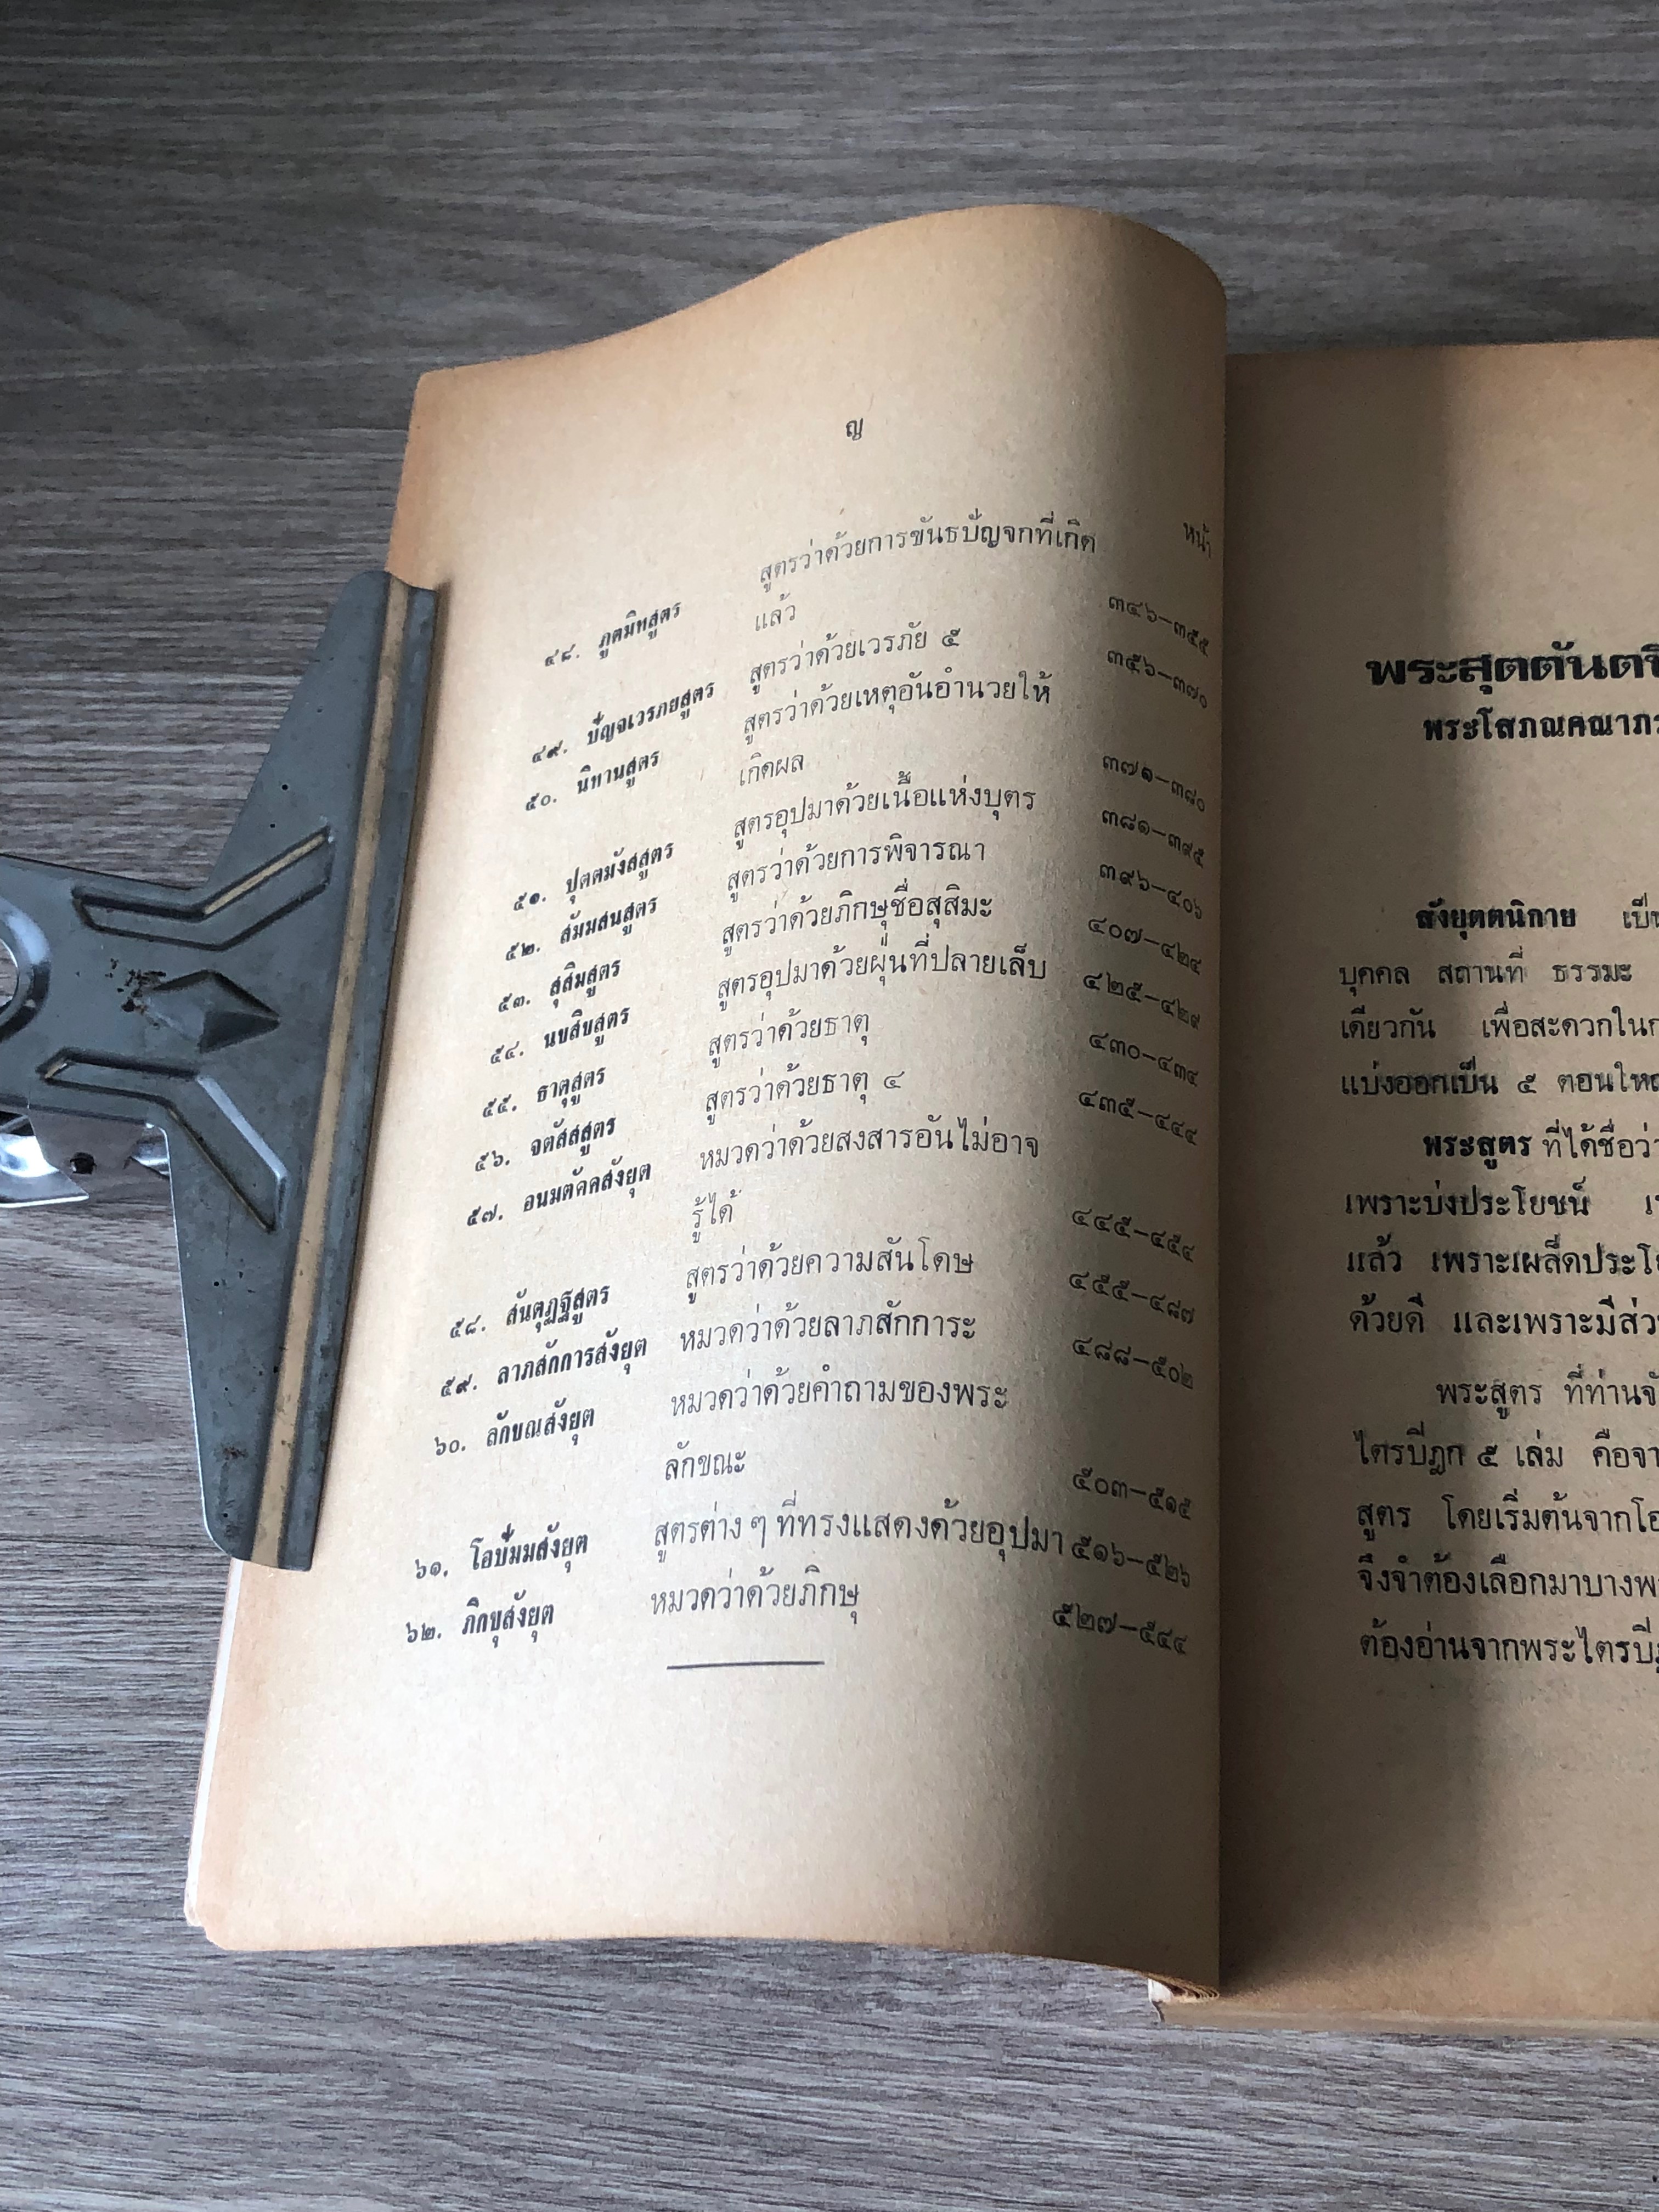 ญ
หน้า
๔๘. ภูตมิทสูตร สูตรว่าด้วยการขันธบัญจกที่เกิด
แล้ว ๓๔๖–๓๕๕
๔๙. ปัญจเวรภยสูตร สูตรว่าด้วยเวรภัย ๕ ๓๕๖–๓๗๐
๕๐. นิทานสูตร สูตรว่าด้วยเหตุอันอำนวยให้
เกิดผล ๓๗๑–๓๘๐
๕๑. ปุตตมังสสูตร สูตรอุปมาด้วยเนื้อแห่งบุตร ๓๘๑–๓๙๕
๕๒. สัมมสนสูตร สูตรว่าด้วยการพิจารณา ๓๙๖–๔๐๖
๕๓. สุสิมสูตร สูตรว่าด้วยภิกษุชื่อสุสิมะ ๔๐๗–๔๒๔
๕๔. นขสิขสูตร สูตรอุปมาด้วยฝุ่นที่ปลายเล็บ ๔๒๕–๔๒๙
๕๕. ธาตุสูตร สูตรว่าด้วยธาตุ ๔๓๐–๔๓๔
๕๖. จตัสสสูตร สูตรว่าด้วยธาตุ ๔ ๔๓๕–๔๔๔
๕๗. อนมตัคคสังยุต หมวดว่าด้วยสงสารอันไม่อาจ
รู้ได้ ๔๔๕–๔๕๔
๕๘. สันตุฏฐิสูตร สูตรว่าด้วยความสันโดษ ๔๕๕–๔๘๗
๕๙. ลาภสักการสังยุต หมวดว่าด้วยลาภสักการะ ๔๘๘–๕๐๒
๖๐. ลักขณสังยุต หมวดว่าด้วยคำถามของพระ
ลักขณะ ๕๐๓–๕๑๕
๖๑. โอปัมมสังยุต สูตรต่าง ๆ ที่ทรงแสดงด้วยอุปมา ๕๑๖–๕๒๖
๖๒. ภิกขุสังยุต หมวดว่าด้วยภิกษุ ๕๒๗–๕๔๔
พระสุตตันต
พระโสภณคณาภร
สังยุตตนิกาย เป็น
บุคคล สถานที่ ธรรมะ
เดียวกัน เพื่อสะดวกใน
แบ่งออกเป็น ๕ ตอนใหญ
พระสูตร ที่ได้ชื่อว่า
เพราะบ่งประโยชน์
แล้ว เพราะเผล็ดประโย
ด้วยดี และเพราะมีส่ว
พระสูตร ที่ท่านจั
ไตรปีฎก ๕ เล่ม คือจา
สูตร โดยเริ่มต้นจากโอ
จึงจำต้องเลือกมาบางพ
ต้องอ่านจากพระไตรปี